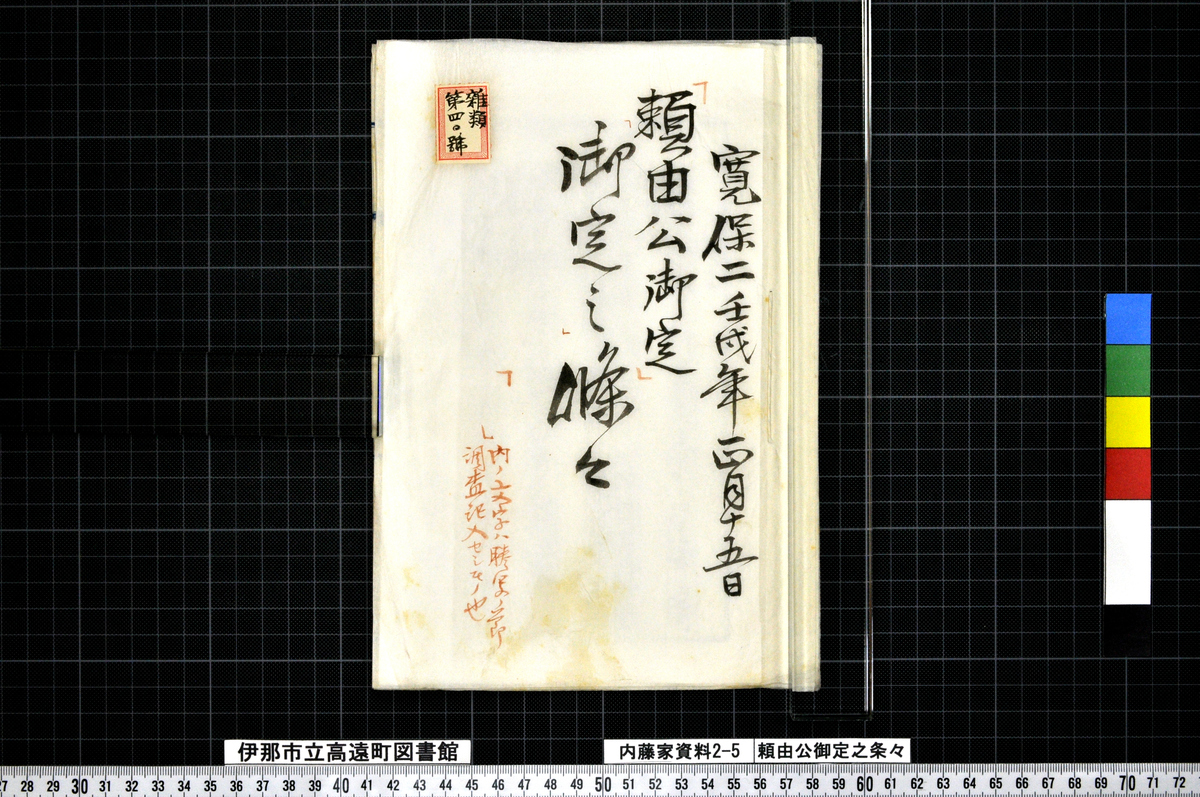 寛保二壬戌年正月十五日
「頼由公御定」
「御定之」條々
「」内ノ文字ハ謄写ノ節
調査記入セシモノ也
雜類
第四〇號
伊那市立高遠町図書館
内藤家資料2-5
頼由公御定之条々
27 28 29 30 31 32 33 34 35 36 37 38 39 40 41 42 43 44 45 46 47 48 49 50 51 52 53 54 55 56 57 58 59 60 61 62 63 64 65 66 67 68 69 70 71 72